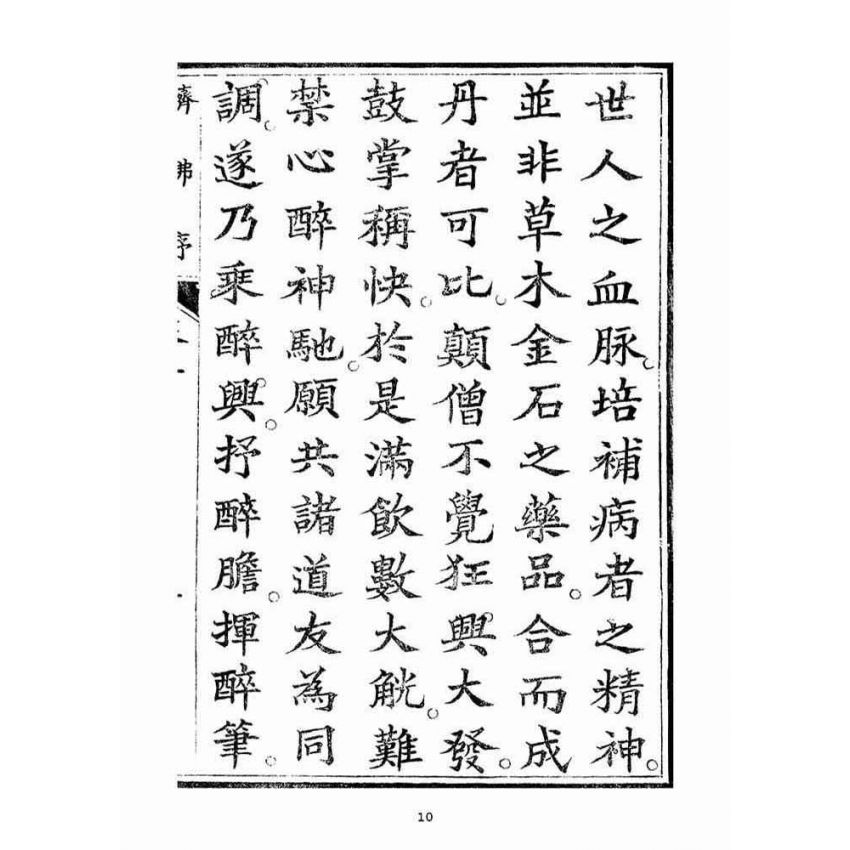 世人之血脉。培補病者之精神。
並非草木金石之藥品。合而成
丹者可比。顛僧不覺狂興大發。
鼓掌稱快。於是滿飲數大觥。難
禁心醉神馳。願共諸道友為同
調。遂乃乘醉興。抒醉膽。揮醉筆。
濟佛序
10